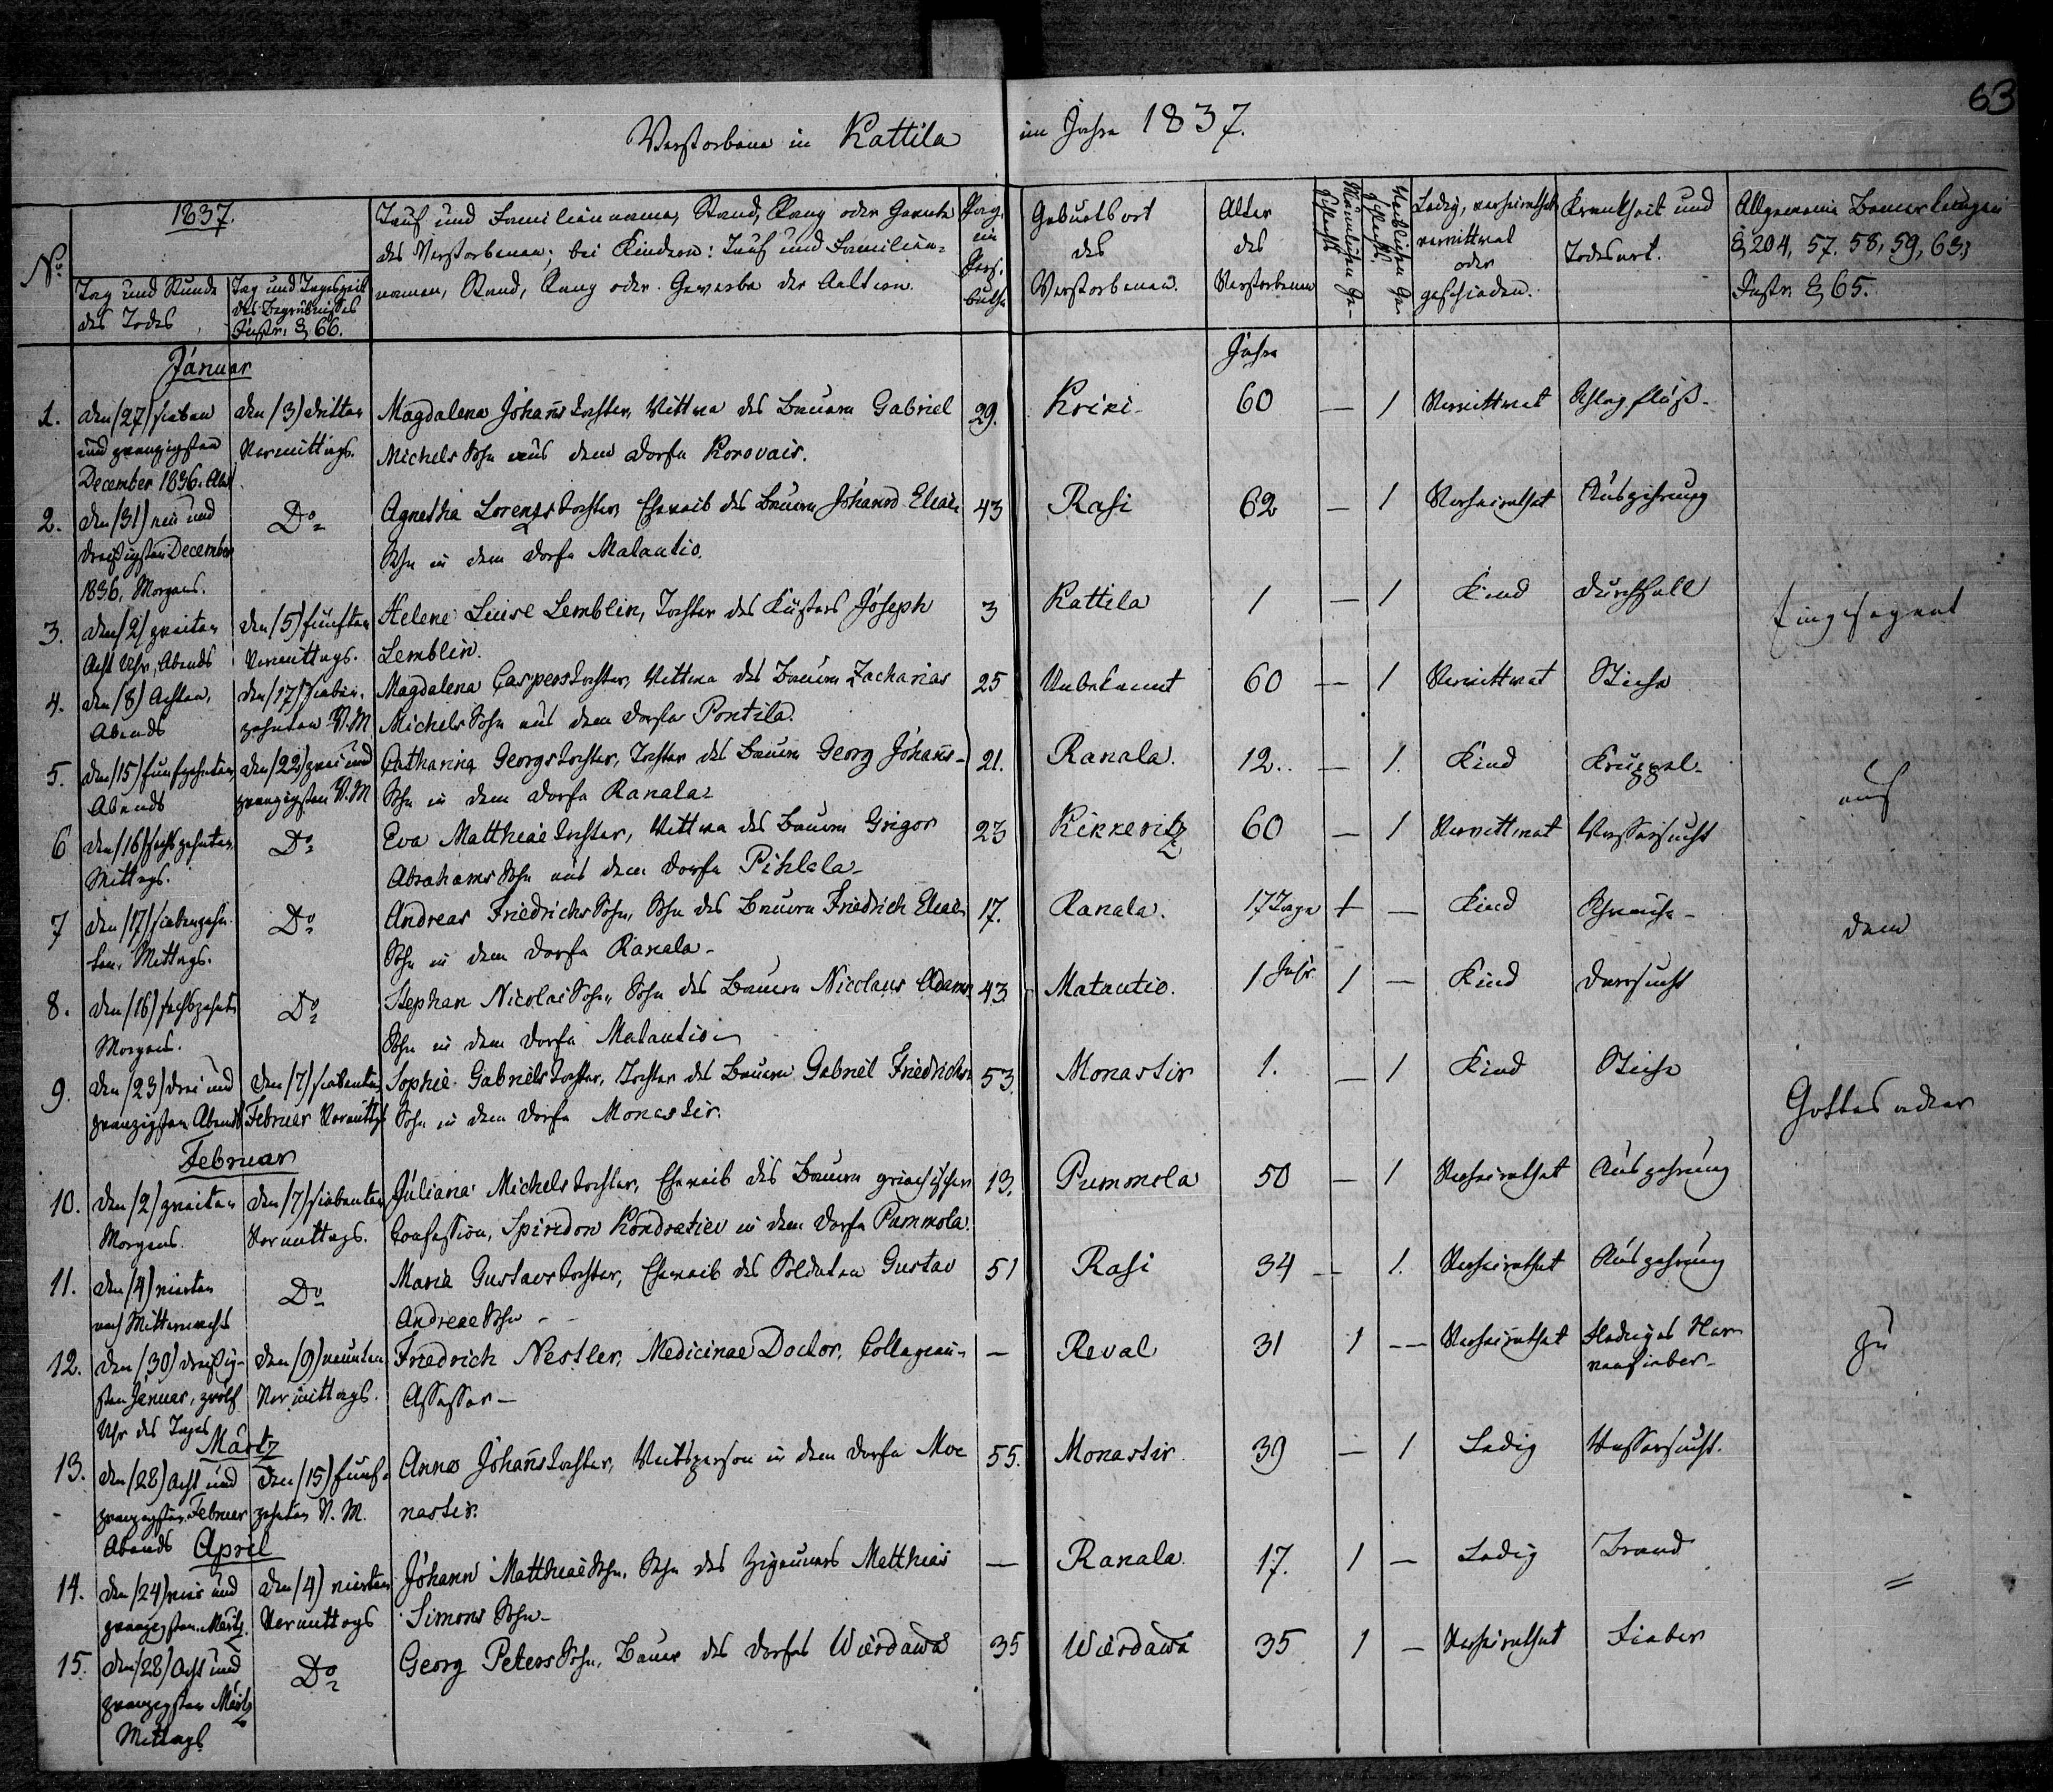 63
Verstorbene in Kattila im Jahre 1837.
No
1837.
Tag und Stunde
des Todes
Tag und Tageszeit
des Begräbnisses
Instr. § 66.
Tauf und Familienname, Stand, Rang oder Gewerbe
des Verstorbenen; bei Kindern: Tauf und Familien-
namen, Stand, Rang oder Gewerbe der Aeltern.
Pag.
im
Pers.
buche
Geburtsort
des
Verstorbenen.
Alter
des
Verstorbenen
Männlichen Ge-
schlechts
Weiblichen Ge-
schlechts.
Ledig, verheirathet
verwittwet
oder
geschieden.
Krankheit und
Todesart.
Allgemeine Bemerkungen
§ 204, 57. 58, 59, 63,
Instr. § 65.
Januar
Jahre
1. den (27) sieben
und zwanzigsten
December 1836.
den (3) dritten
Vormittags.
Magdalena Johanns Tochter, Wittwe des Bauern Gabriel
Michels Sohn aus dem Dorfe Korovais.
29. Krini 60 — 1 Verwittwet Schlagfluß.
2. den (31) ein und
dreißigsten December
1836, Morgens.
Do
Agnetha Lorenz Tochter, Eheweib des Bauern Johann Elias
Sohn in dem Dorfe Matautio.
43 Rasi 62 — 1 Verheirathet Auszehrung
3. den (2) zweiten
Acht Uhr, Abends
den (5) fünften
Vormittags.
Helene Luise Lemblin, Tochter des Küsters Joseph
Lemblin.
3 Kattila 1 — 1 Kind Durchfall
Eingesegnet
4. den (8) Achten,
Abends
den (17) sieben-
zehnten V. M
Magdalena Caspers Tochter, Wittwe des Bauern Zacharias
Michels Sohn aus dem Dorfe Pontila.
25 Unbekannt 60 — 1 Verwittwet Stiche
5. den (15) funfzehnten
Abends
den (22) zwei und
zwanzigsten V. M
Catharina Georgs Tochter, Tochter des Bauern Georg Johanns
Sohn in dem Dorfe Ranala
21. Ranala. 12. — 1. Kind Krüppel
auf
6 den (16) sechszehnten
Mittags.
Do
Eva Matthiae Tochter, Wittwe des Bauern Grigor
Abrahams Sohn aus dem Dorfe Pihlala
23 Kikkeritz 60 — 1 Verwittwet Wassersucht
7 den (17) siebenzehn-
ten, Mittags.
Do
Andreas Friedrichs Sohn, Sohn des Bauern Friedrich Elias
Sohn in dem Dorfe Ranala
17. Ranala. 17 Tage 1 — Kind
dem
8. den (16) sechszehnten
Morgens.
Do
Stephan Nicolai Sohn, Sohn des Bauern Nicolaus Adams
Sohn in dem Dorfe Matautio
43 Matautio. 1 Jahr 1 — Kind Darrsucht
9. den (23) drei und
zwanzigsten Abends
den (7) siebenten
Februar Vormittags
Sophie Gabriels Tochter, Tochter des Bauern Gabriel Friedrichs
Sohn in dem Dorfe Monastir.
53. Monastir 1. — 1 Kind Stiche
Gottesacker
Februar
10. den (2) zweiten
Morgens.
den (7) siebenten
Vormittags.
Juliana Michels Tochter, Eheweib des Bauern griechischer
Confession, Spiridon Kondratiev in dem Dorfe Pummola.
13. Pummola 50 — 1 Verheirathet Auszehrung
11. den (4) vierten
nach Mitternacht
Do
Maria Gustavs Tochter, Eheweib des Soldaten Gustav
Andreae Sohn
51 Rasi 34 — 1. Verheirathet Auszehrung
12. den (30) dreißig-
sten Januar, zwölf
Uhr des Tages
den (9) neunten
Vormittags.
Friedrich Nestler, Medicinae Doctor, Collegien-
Assessor —
— Reval 31 1 — Verheirathet Hediges Ner-
venfieber
zu
Märtz
13. den (28) Acht und
zwanzigsten Februar
Abends
den (15) funf-
zehnten V. M.
Anna Johanns Tochter, Weibsperson in dem Dorfe Mo-
nastir.
55. Monastir 39 — 1 Ledig Wassersucht.
April
14. den (24) vier und
zwanzigsten Märtz
den (4) vierten
Vormittags
Johann Matthiae Sohn, Sohn des Zigeuners Matthias
Simons Sohn
— Ranala 17. 1 — Ledig Brand
=
15. den (28) Acht und
zwanzigsten Märtz
Mittags
Do
Georg Peters Sohn, Bauer des Dorfes Wärdawä
35 Wärdawä 35 1 — Verheirathet Fieber